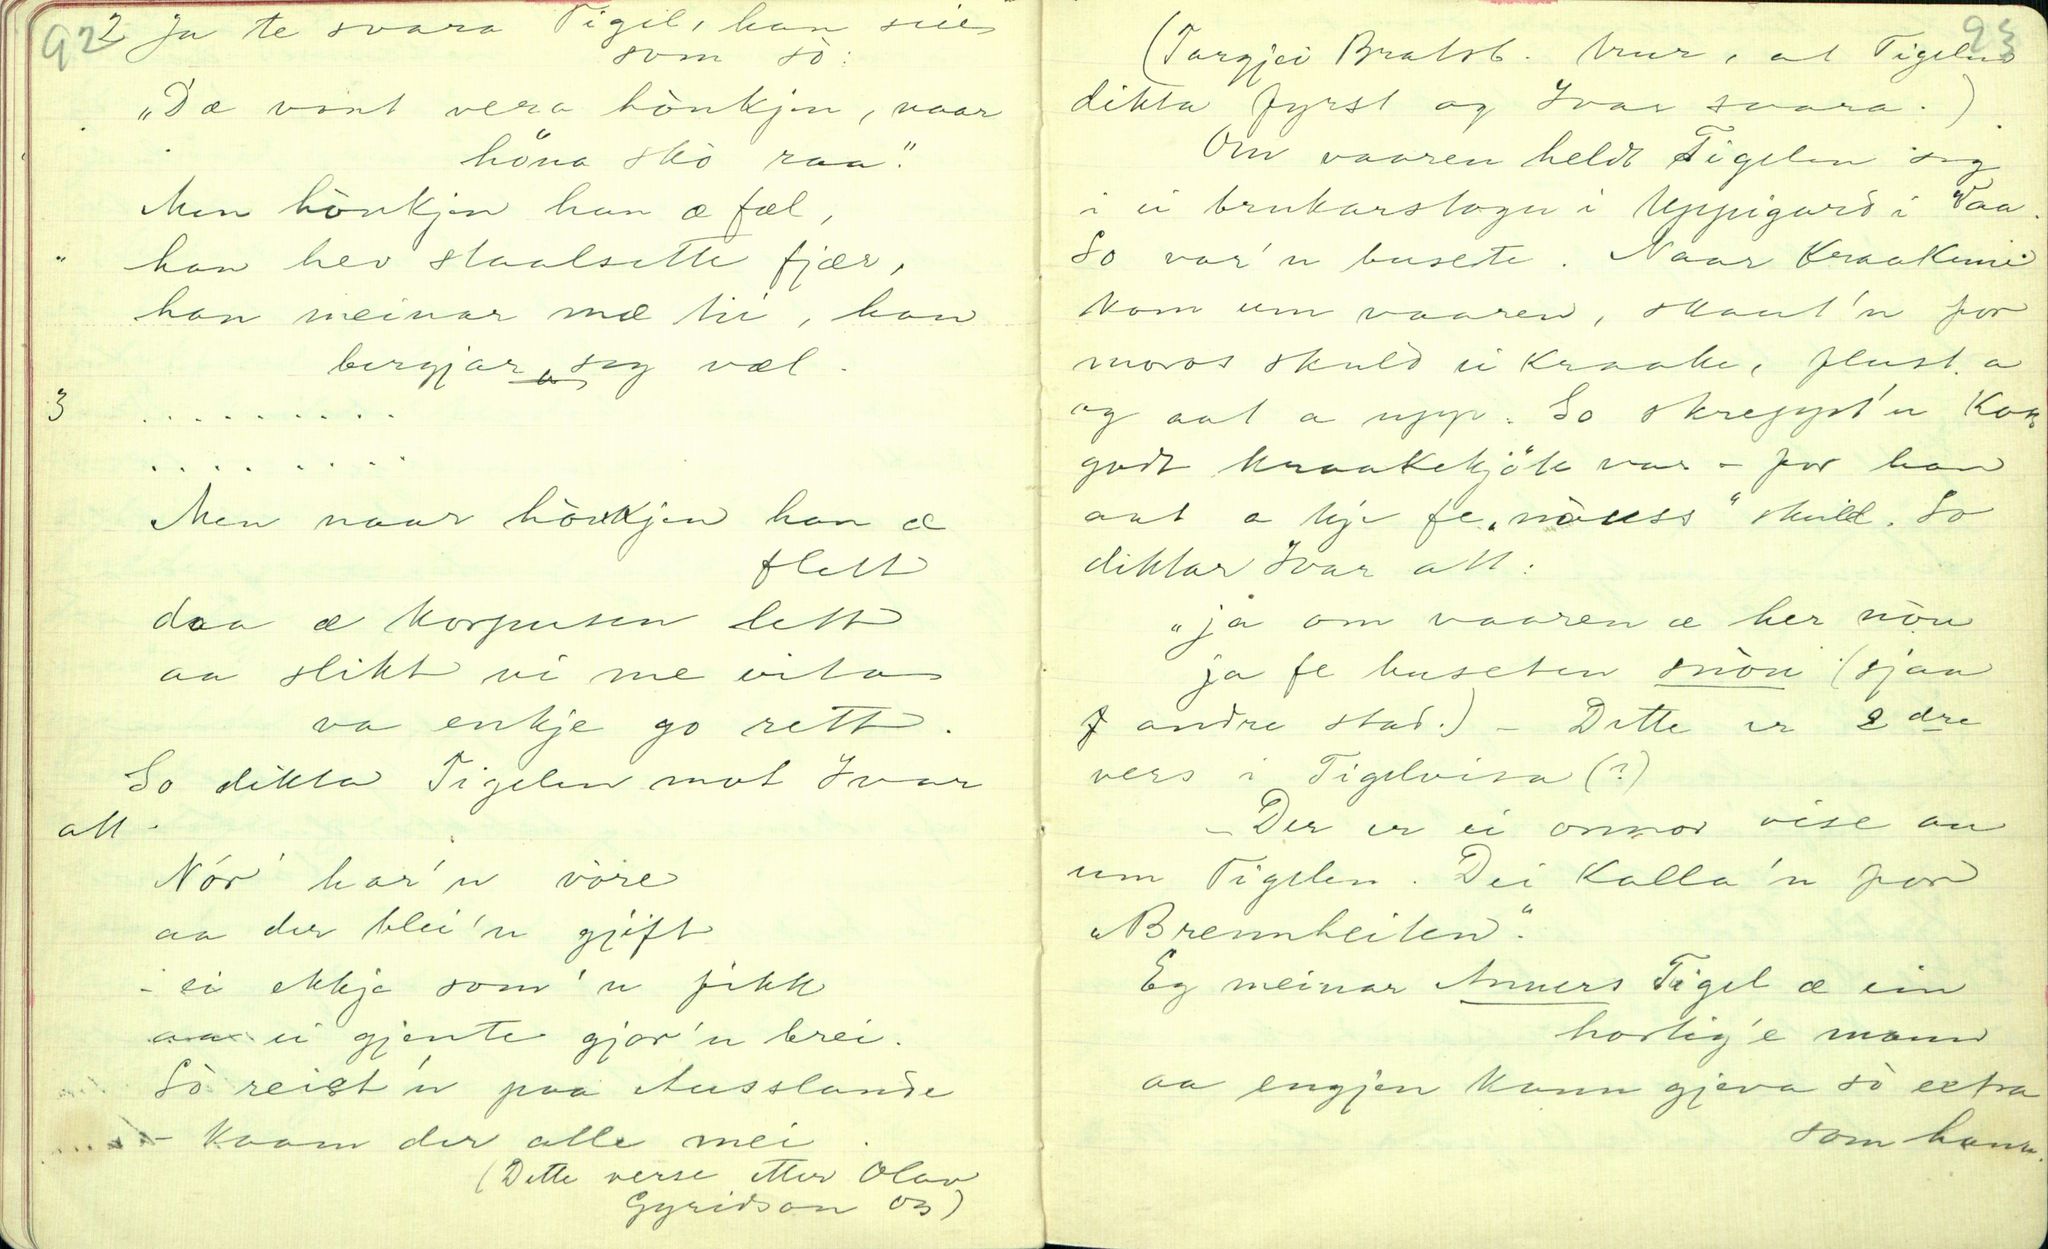 92
2 Ja te svara Tigil, han seie
som sò:
"Dæ vont vera hònkjen, naar
höna skò raa".
Men hònkjen han æ fæl,
" han hev staalsette fjær,
han meinar mæ ti, han
bergjar seg væl.
3 . . . . . . . . .
. . . . . . . .
Men naar hònkjen han æ
flett
daa æ korpusen lett
aa slikt vi me vita
va enkje go rett.
So dikta Tigelen mot Ivar
att.
Nór' har'n vòre
aa der blei'n gjift
- ei ekkje som'n fikk
aa ei gjente gjor'n brei.
Sò reist'n paa Ausslande
- kaam der alle mei.
(Dette verse etter Olav
Gyridson Os)
93
(Targjei Bratsb. trur, at Tigelen
dikta fyrst og Ivar svara.)
Om vaaren heldt Tigelen seg
i ei brukarstogu i Uppigard i Daa.
So var'n busete. Naar kraakune
kom um vaaren, skaut'n for
moros skuld ei kraake, flust a
og aat a upp. So skrepyt'n kor
godt kraakekjöt var - for han
aat a kje fe "nòuss" skuld. So
diktar Ivar att:
"ja om vaaren æ her nòu
ja fe buseten snòu (sjaa
andre stad.) - Dette er 2dre
vers i Tigelvisa (?)
- Der er ei onnor vise au
um Tigelen. Dei kalla'n for
"Brennheiten".
Eg meinar Anners Tigel æ ein
hortig'e mann
aa engjen kann gjeva sò extra
som hann.